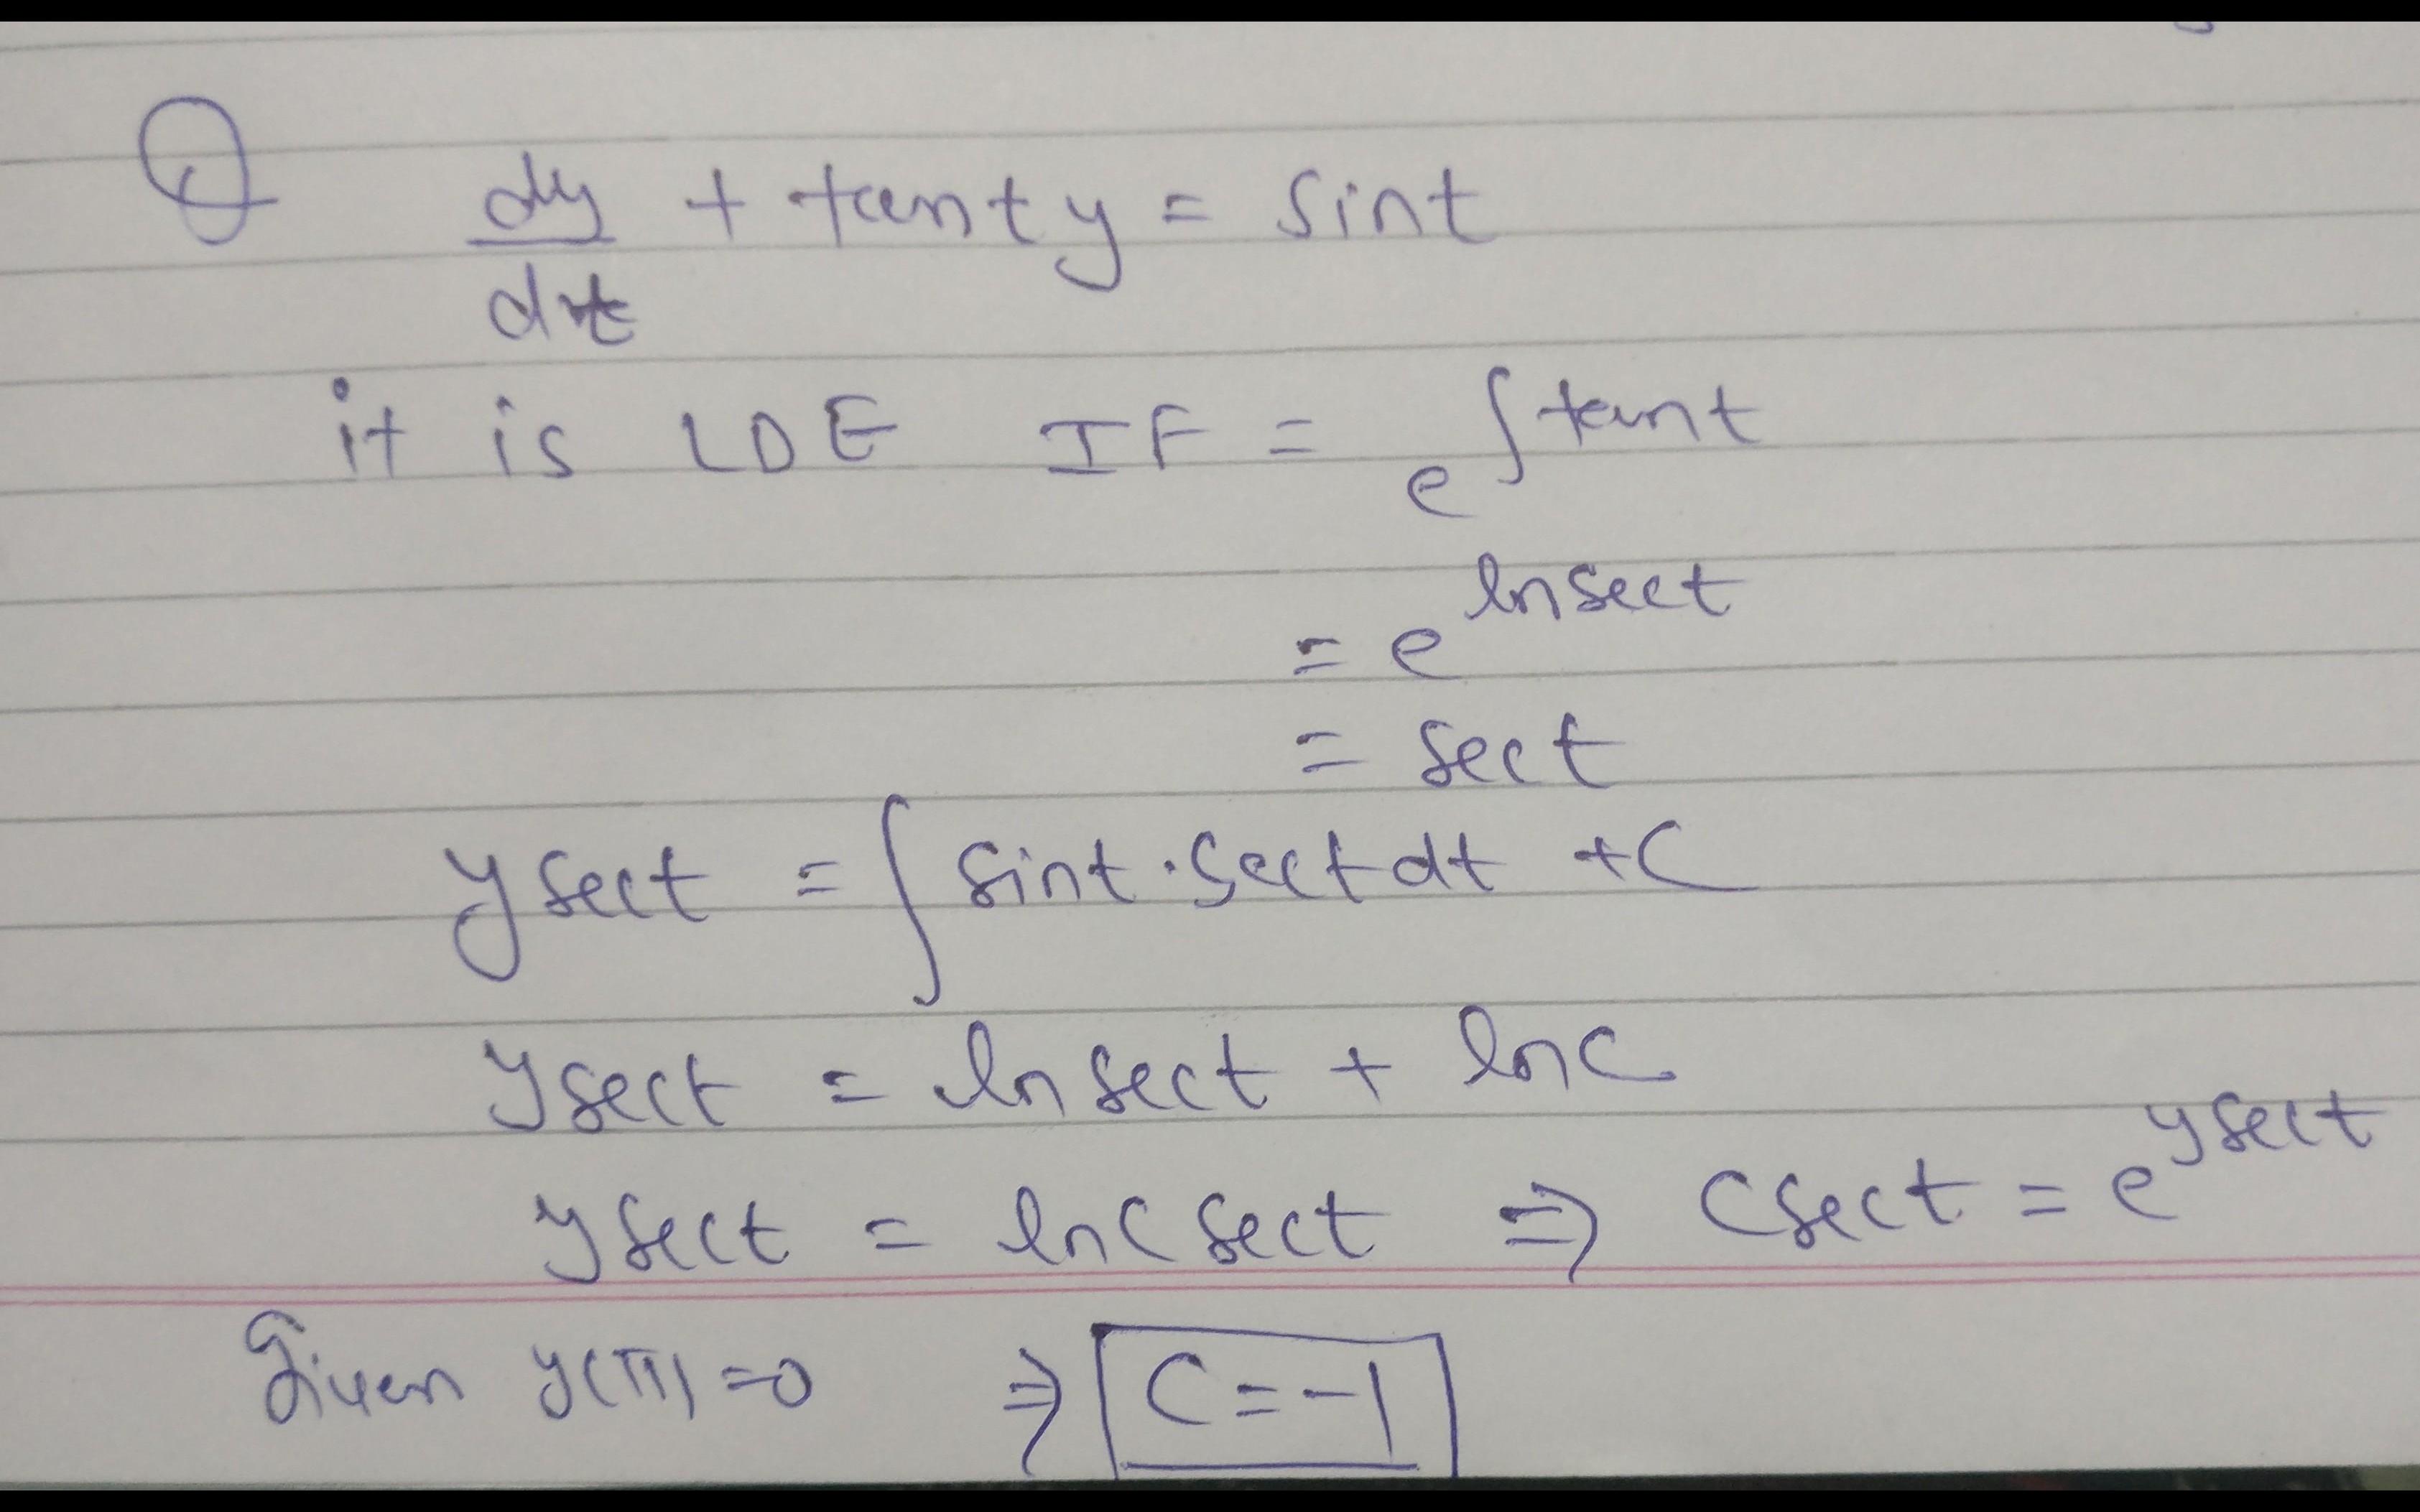 Q dy/dt + tant y = sint
it is LDE IF = e^∫tant
= e^lnsect
= sect
y sect = ∫ sint · sect dt + C
y sect = ln sect + lnC
y sect = lnC sect ⇒ C sect = e^y sect
Given y(π) = 0 ⇒ C = -1